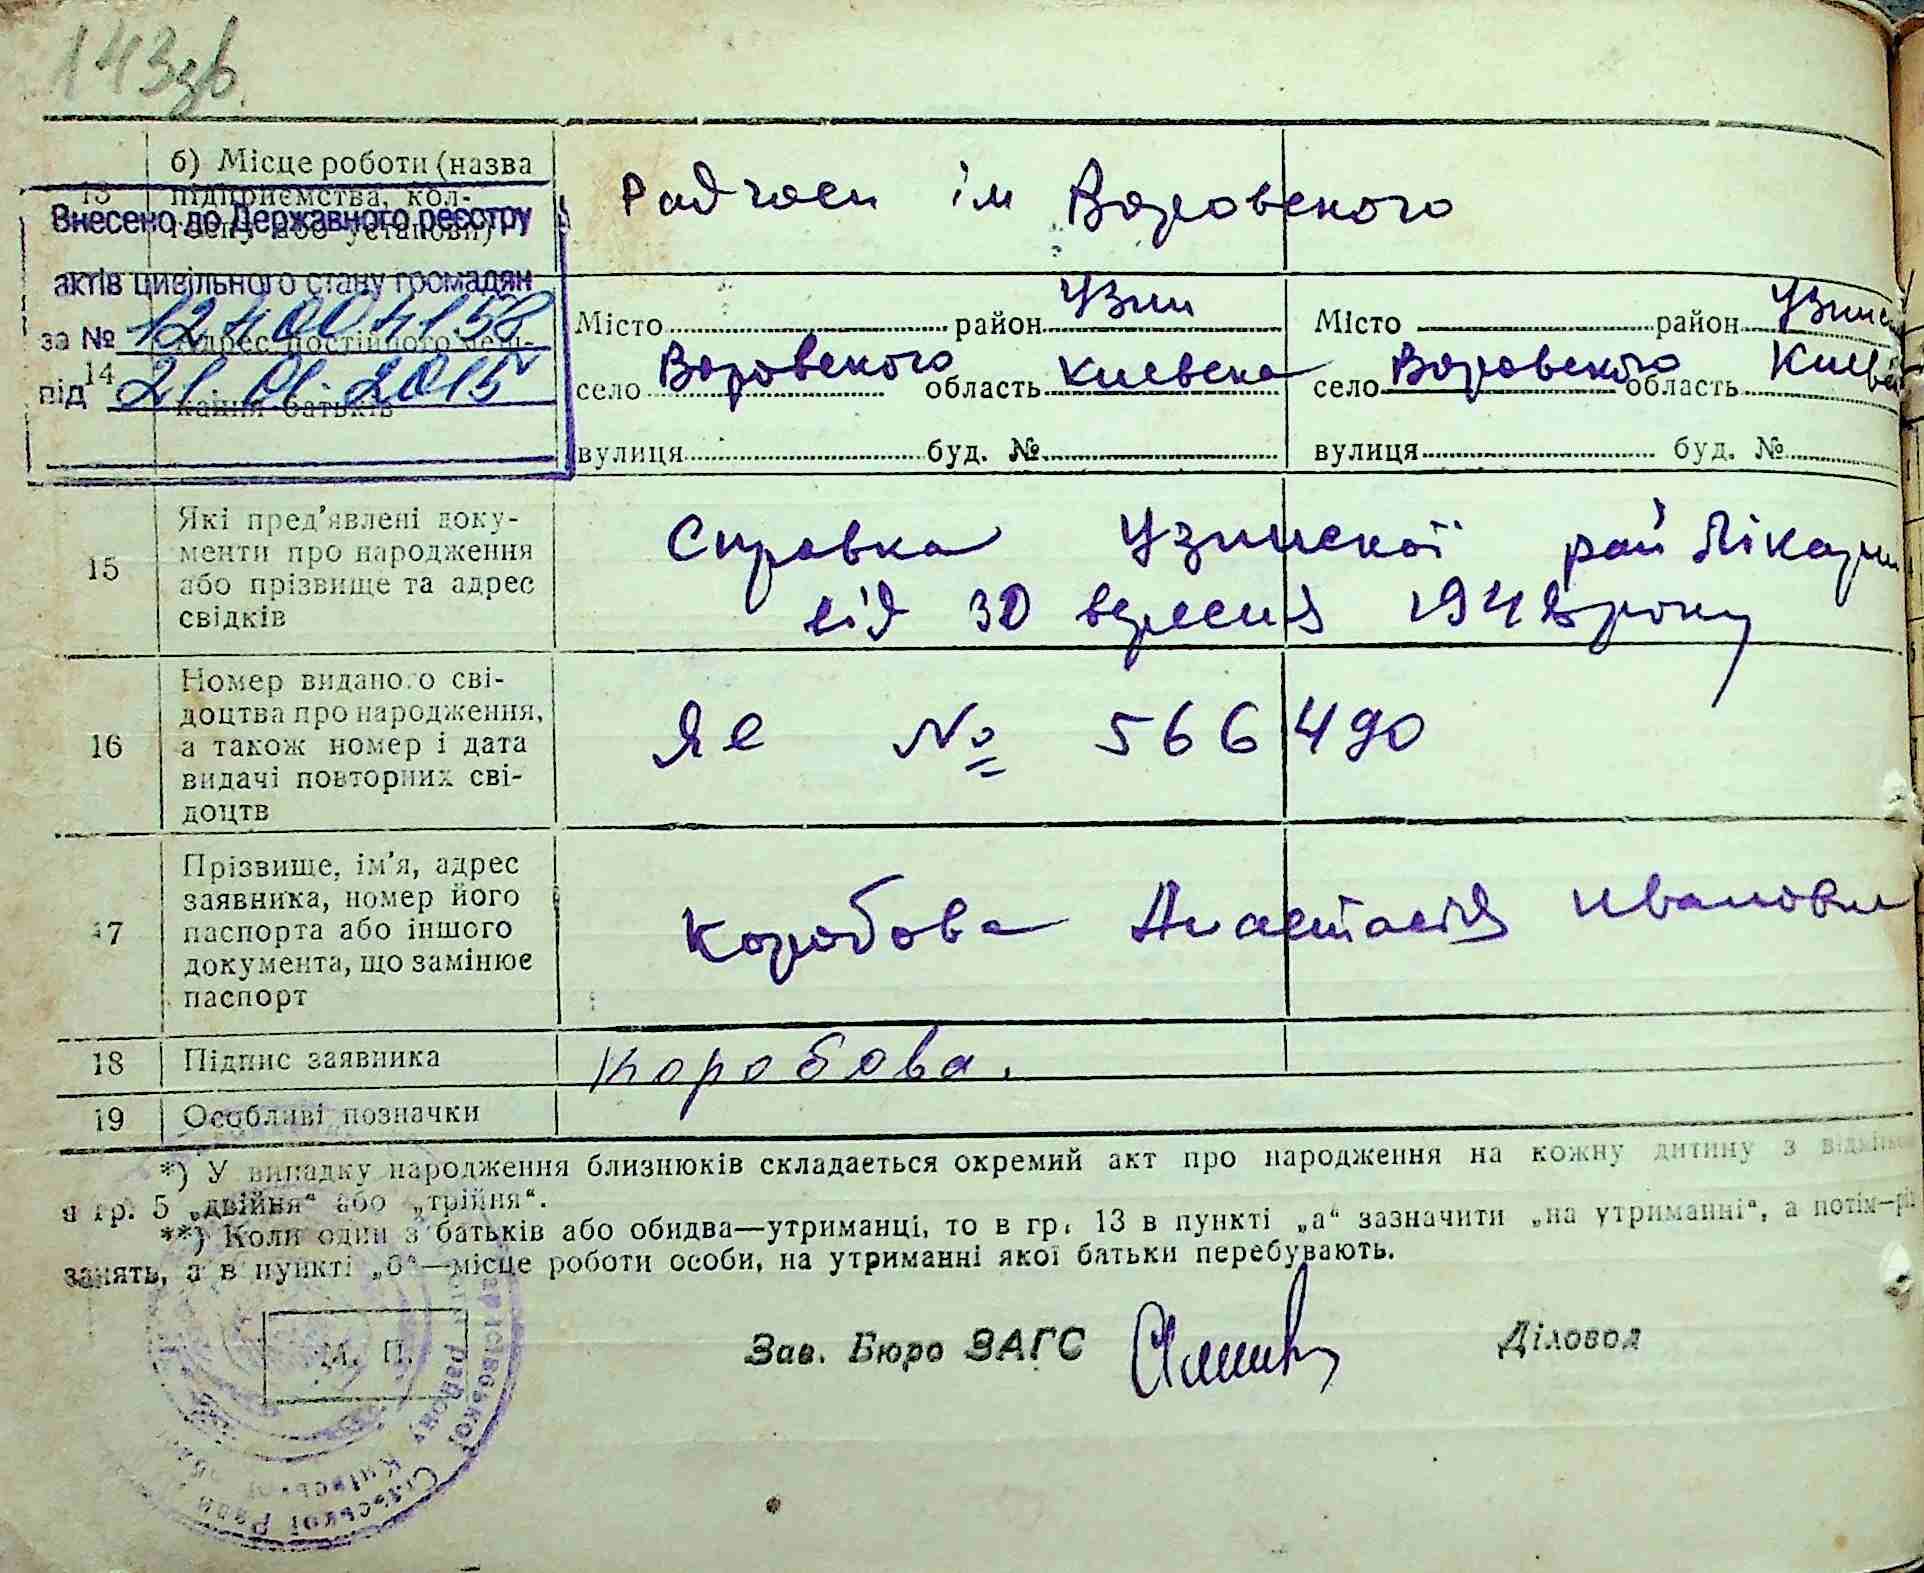 143зв.
13
б) Місце роботи (назва
підприємства, кол-
госпу або установи)
Радгосп ім Воровского
Внесено до Державного реєстру
актів цивільного стану громадян
за № 124004158
під 21.01.2015
14
Адрес постійного меш-
кання батьків
Місто район Узин
село Воровского область Киевска
вулиця буд. №
Місто район Узинс
село Воровского область Київс
вулиця буд. №
15
Які пред'явлені доку-
менти про народження
або прізвище та адрес
свідків
Справка Узинскої рай лікарні
від 30 вересня 1948 року
16
Номер виданого сві-
доцтва про народження,
а також номер і дата
видачі повторних сві-
доцтв
ЯЕ № 566490
17
Прізвище, ім'я, адрес
заявника, номер його
паспорта або іншого
документа, що замінює
паспорт
Коробова Анастасія Ивановн
18 Підпис заявника
Коробова.
19 Особливі позначки
*) У випадку народження близнюків складається окремий акт про народження на кожну дитину з відмі
в гр. 5 „двійня“ або „трійня“.
**) Коли один з батьків або обидва—утриманці, то в гр. 13 в пункті „а“ зазначити „на утриманні“, а потім—рід
занять, а в пункті „б“—місце роботи особи, на утриманні якої батьки перебувають.
М. П.
Зав. Бюро ЗАГС
Діловод
Сільської Ради
району Київської